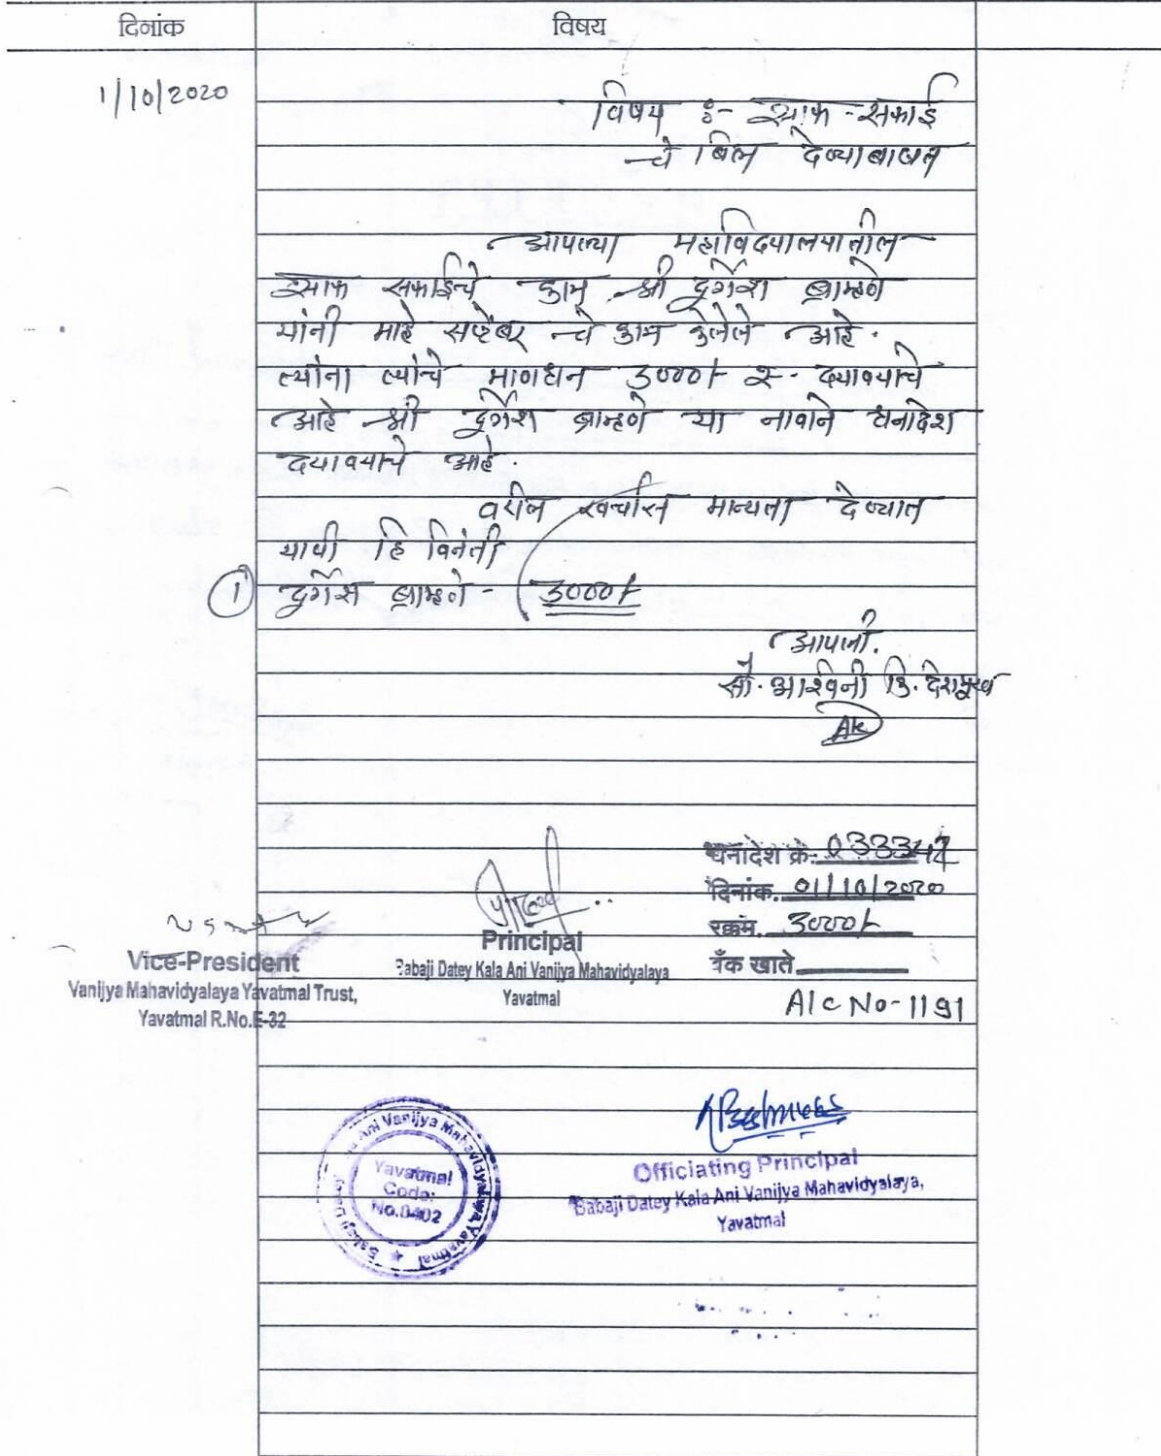 दिनांक
विषय
1/10/2020
विषय :- साफ-सफाई
चे बिल देण्याबाबत
आपल्या महाविदयालयातील
साफ सफाईचे काम श्री दुर्गेश ब्राम्हणे
यांनी माहे सप्टेंबर चे काम केलेले आहे.
त्यांना त्यांचे मानधन 3000/- रु. दयावयाचे
आहे श्री दुर्गेश ब्राम्हणे या नावाने धनादेश
दयावयाचे आहे.
वरील खर्चास मान्यता देण्यात
यावी हि विनंती
① दुर्गेस ब्राम्हणे - 3000/-
आपली.
सौ. आश्विनी कि. देशमुख
AK
धनादेश क्रं. 033342
दिनांक. 01/10/2020
रक्कम. 3000/-
बँक खाते
A/c No-1191
Vice-President
Vanijya Mahavidyalaya Yavatmal Trust,
Yavatmal R.No.E-32
Principal
Babaji Datey Kala Ani Vanijya Mahavidyalaya
Yavatmal
Yavatmal
Code:
No.0402
Officiating Principal
Babaji Datey Kala Ani Vanijya Mahavidyalaya,
Yavatmal